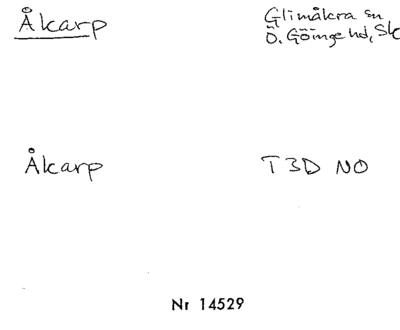 Åkarp
Glimåkra sn
Ö. Göinge hd, Sk
Åkarp
T3D NO
Nr 14529